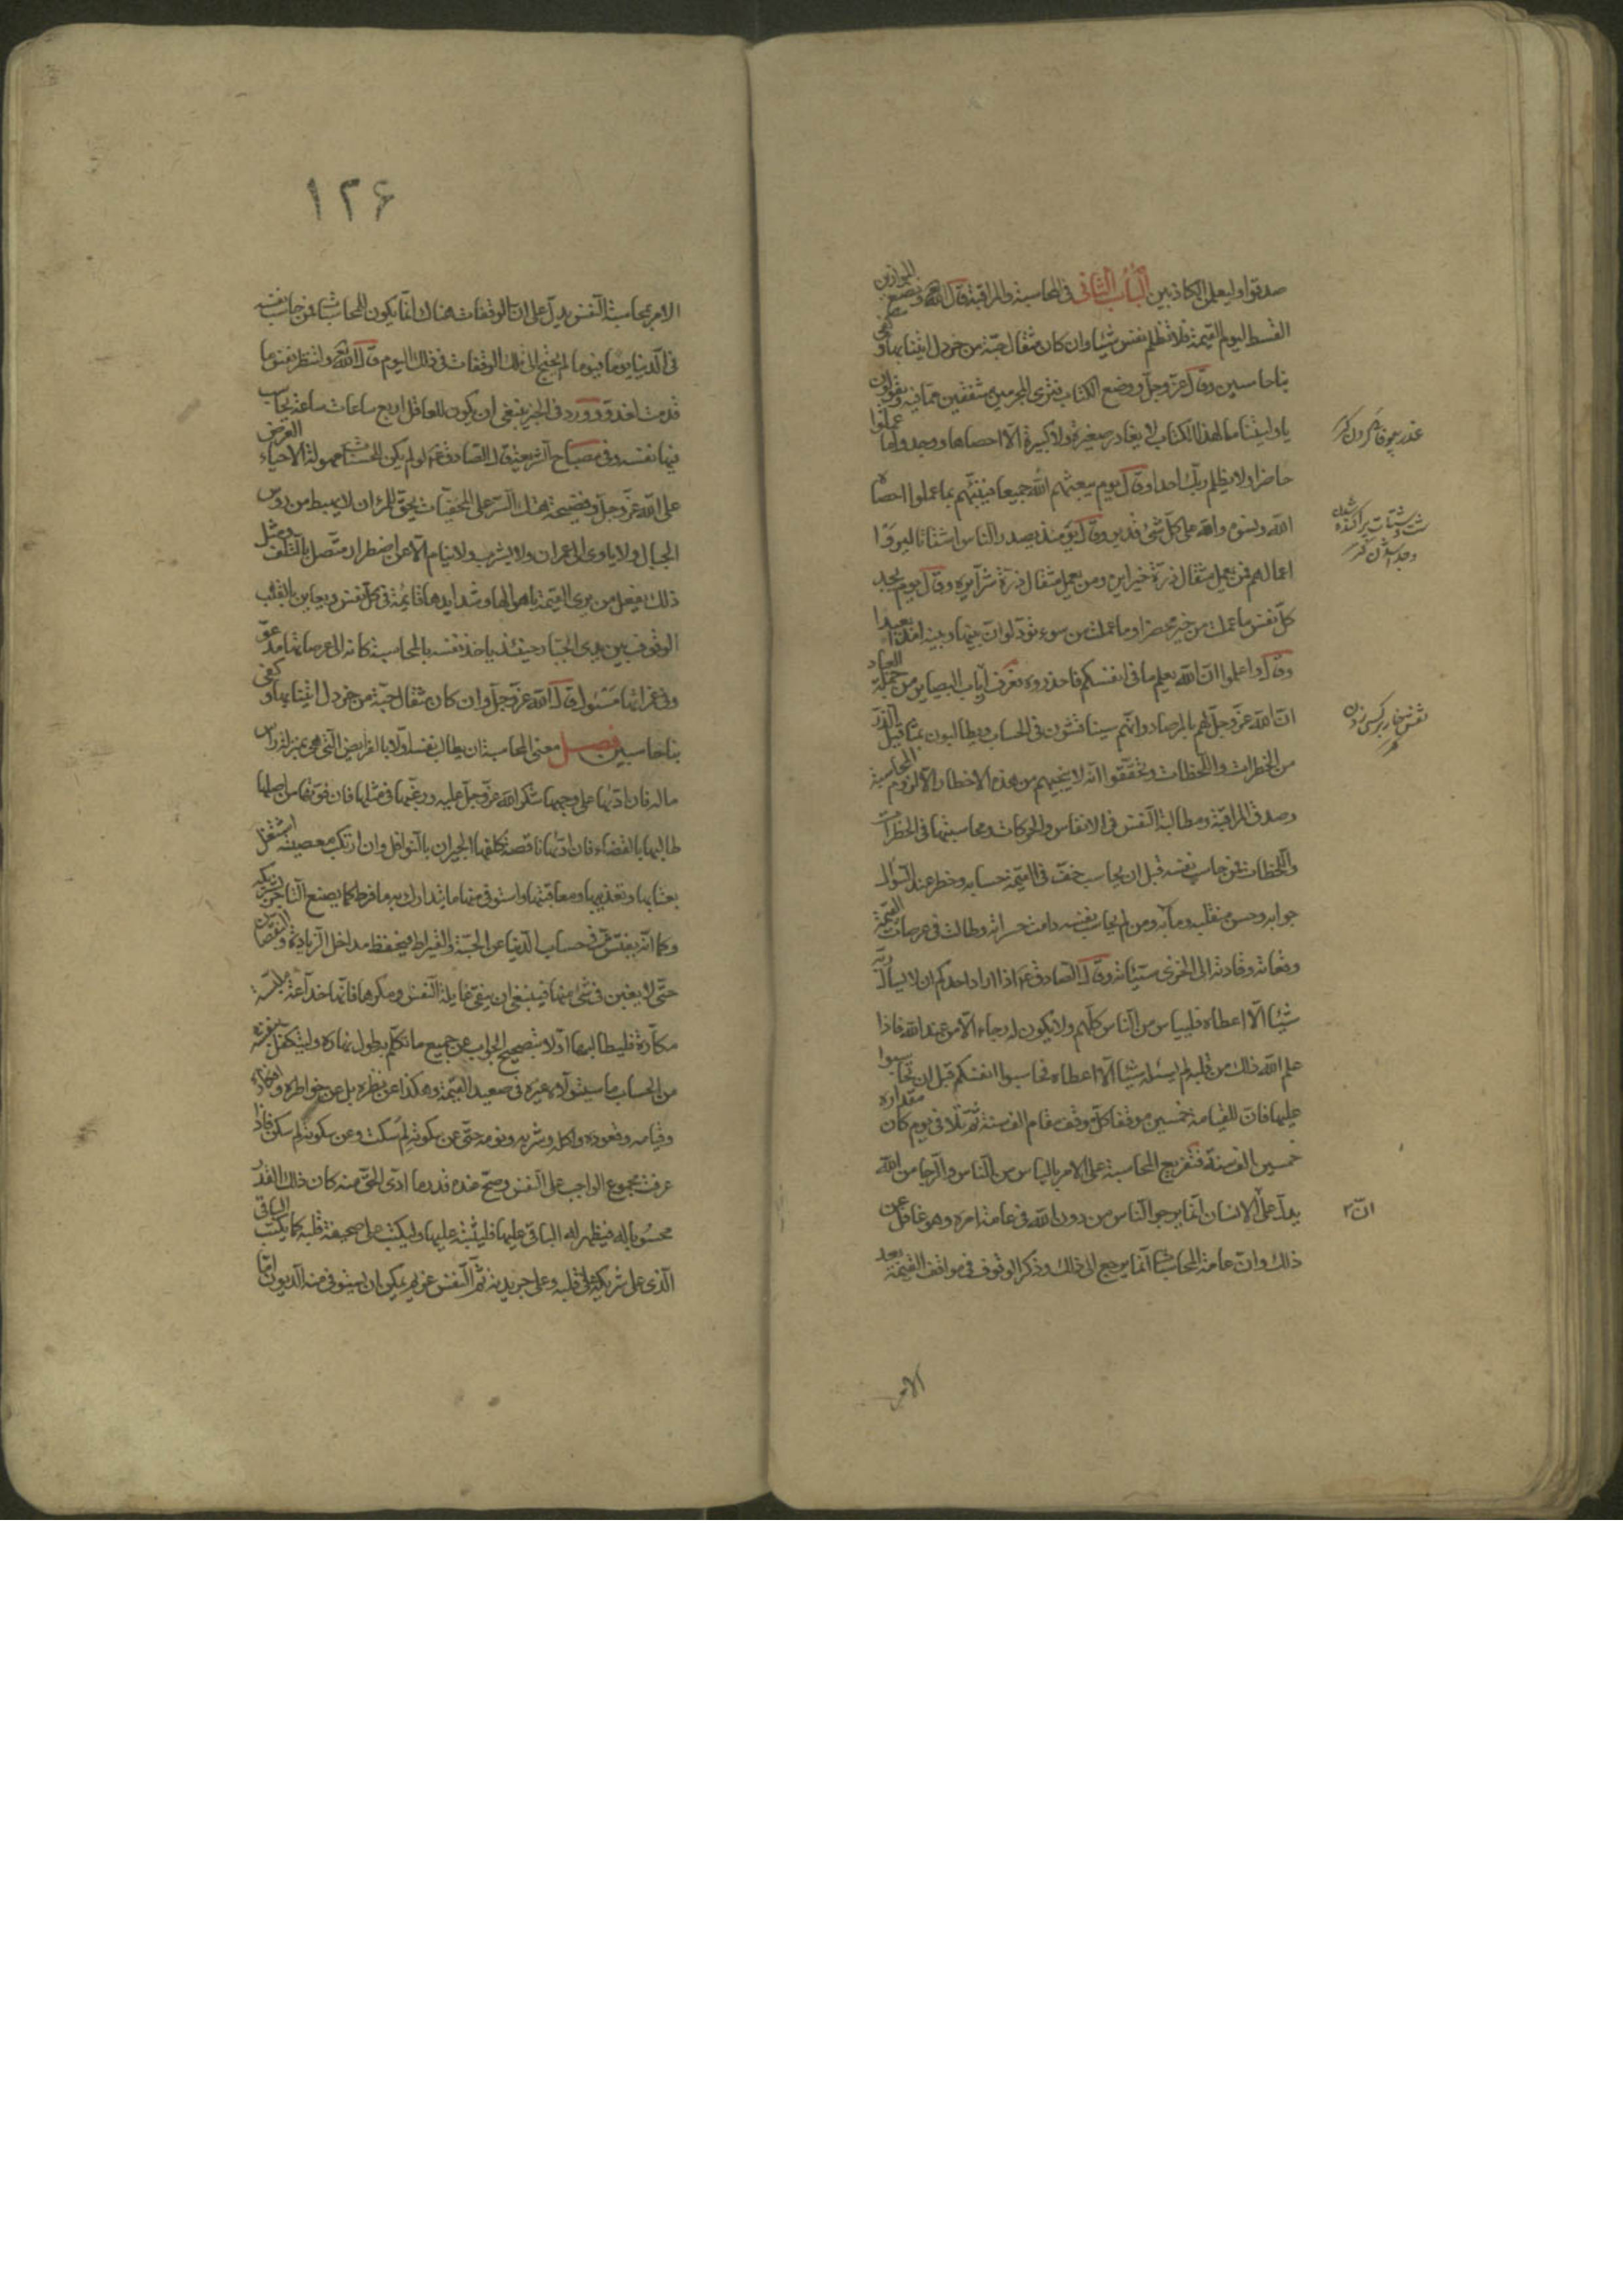 صدقوا وليعلمن الكاذبين الباب الثانى فى المحاسبة والمراقبة قال الله تعالى ونضع الموازين
القسط ليوم القيمة فلا تظلم نفس شيئا وان كان مثقال حبة من خردل اتينا بها وكفى
بنا حاسبين وقال عز وجل ووضع الكتاب فترى المجرمين مشفقين مما فيه ويقولون
يا ويلتنا مال هذا الكتاب لا يغادر صغيرة ولا كبيرة الا احصاها ووجدوا ما عملوا
حاضرا ولا يظلم ربك احدا وقال يوم يبعثهم الله جميعا فينبئهم بما عملوا احصاه
الله ونسوه والله على كل شئ قدير وقال يومئذ يصدر الناس اشتاتا ليروا
اعمالهم فمن يعمل مثقال ذرة خيرا يره ومن يعمل مثقال ذرة شرا يره وقال يوم تجد
كل نفس ما عملت من خير محضرا وما عملت من سوء تود لو ان بينها وبينه امدا بعيدا
وقال واعلموا ان الله يعلم ما فى انفسكم فاحذروه فعرف ارباب البصاير من جملة العباد
ان الله عز وجل لهم بالمرصاد وانهم سيناقشون فى الحساب ويطالبون بمثاقيل الذر
من الخطرات واللحظات وتحققوا انه لا ينجيهم من هذه الاخطار الا لزوم المحاسبة
وصدق المراقبة ومطالبة النفس فى الانفاس والحركات ومحاسبتها فى الخطرات
واللحظات فمن حاسب نفسه قبل ان يحاسب خف فى القيمة حسابه وحضر عند السؤال
جوابه وحسن منقلبه ومآبه ومن لم يحاسب نفسه دامت حسراته وطالت فى عرصات القيمة
وقفاته وقادته الى الخزى سيئاته وقال الصادق ع اذا اراد احدكم ان لا يسأل ربه
شيئا الا اعطاه فليياس من الناس كلهم ولا يكون له رجاء الا من عند الله فاذا
علم الله ذلك من قلبه لم يسئله شيئا الا اعطاه فحاسبوا انفسكم قبل ان تحاسبوا
عليها فان للقيامة خمسين موقفا كل موقف مقام الف سنة ثم تلا فى يوم كان مقداره
خمسين الف سنة فتفريع المحاسبة على الامر بالياس من الناس والرجا من الله
يدل على الانسان انما يرجو الناس من دون الله فى عامة امره وهو غافل عن
ذلك وان عامة المحاسبات انما يرجع الى ذلك وذكر الوقوف فى مواقف القيمة بعد
الامر
غدر بيوفائى كردن كنز
شت وشتات پراكنده شدن
وجدا شدن كنز
نقش خار بركسى زدن
كنز
ان
۱۲۶
الامر بمحاسبة النفس يدل على ان الوقفات هناك انما يكون للمحاسبات فمن حاسب نفسه
فى الدنيا يوما فيوما لم يحتج الى تلك الوقفات فى ذلك اليوم قال الله تعالى ولتنظر نفس ما
قدمت لغد وورد فى الخبر ينبغى ان يكون للعاقل اربع ساعات ساعة يحاسب
فيها نفسه وفى مصباح الشريعة قال الصادق ع لو لم يكن للحساب مهولة الا حياء العرض
على الله عز وجل وفضيحة هتك الستر على المخفيات يحق للمرء ان لا يهبط من رؤس
الجبال ولا ياوى الى عمران ولا يشرب ولا ينام الا عن اضطرار متصل بالتلف ومثل
ذلك يفعل من يرى القيمة باهوالها وشدايدها قائمة فى كل نفس ويعاين بالقلب
الوقوف بين يدى الجبار حينئذ ياخذ نفسه بالمحاسبة كانه الى عرصاتها مدعو
وفى غمراتها مسئول قال الله عز وجل وان كان مثقال حبة من خردل اتينا بها وكفى
بنا حاسبين فصل معنى المحاسبة ان يطالب نفسه اولا بالفرايض التى هى بمنزلة راس
ماله فان ادتها على وجهها شكر الله عز وجل عليه ورغبها فى مثلها فان فوتها من اصلها
طالبها بالقضاء فان ادتها ناقصة كلفها الجبران بالنوافل وان ارتكب معصية اشتغل
بعتابها وتعذيبها ومعاقبتها واستوفى منها ما يتدارك به ما فرط كما يصنع التاجر بشريكه
وكما انه يفتش فى حساب الدنيا عن الحبة والقيراط فيحفظ مداخل الزيادة والنقصان
حتى لا يغبن فى شئ منها فينبغى ان يتقى غايلة النفس ومكرها فانها خداعة ملبسة
مكارة فليطالبها اولا بتصحيح الجواب عن جميع ما تكلم به طول نهاره وليتكفل بنفسه
من الحساب ما سيتولاه غيره فى صعيد القيمة وهكذا عن نظره بل عن خواطره وافكاره
وقيامه وقعوده واكله وشربه ونومه حتى عن سكوته لم سكت وعن سكونه لم سكن فاذا
عرف مجموع الواجب على النفس وصح عنده قدر ما ادى الحق منه كان ذلك القدر
محسوبا له فيظهر له الباقى عليها فليثبته عليها وليكتب على صحيفة قلبه كما يكتب الباقى
الذى على شريكه على قلبه وعلى جريدته ثم النفس غريم يمكن ان يستوفى منه الديون اما